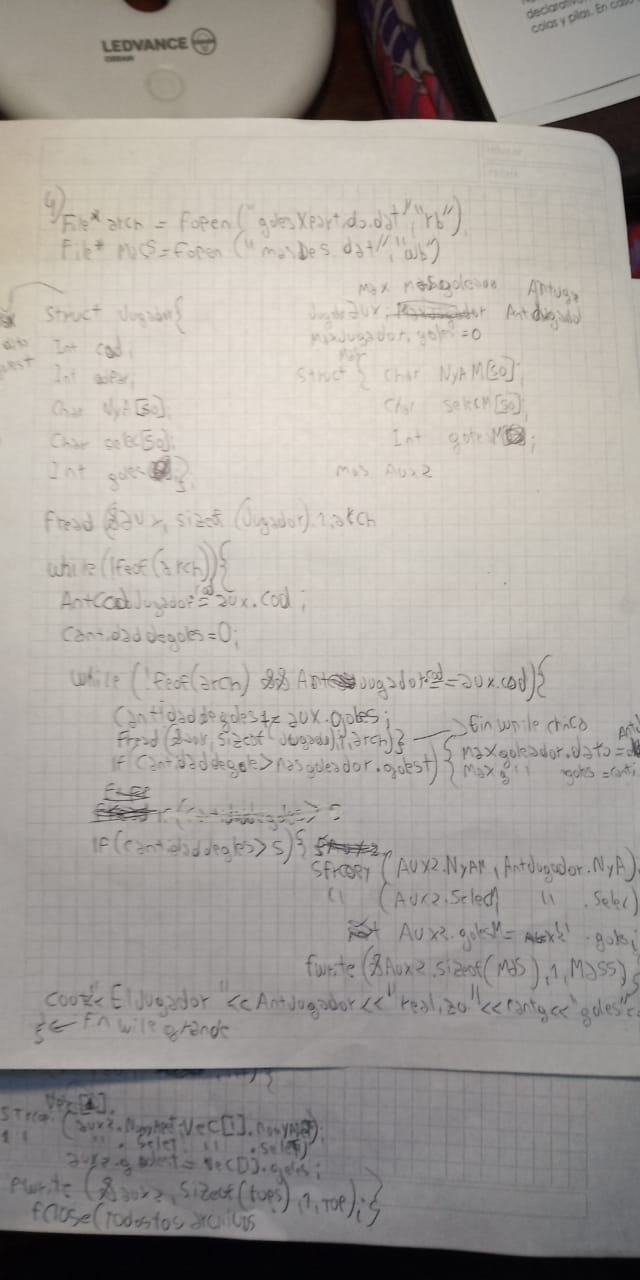 LEDVANCE
OSRAM
declarativ
colas y pilas. En caso
4)
File* arch = Fopen ("golesXpartido.dat", "rb")
File* MaS = fopen ("masDes.dat", "wb")
Struct Jugador{
Int cod;
Int
Char NyA[50];
Char selec[50];
Int goles };
max masgoleador AntJuga
Jugador aux, AntJugador
maxJugador, goles = 0
mas
Struct { Char NyAM[50];
Char selecM[50];
Int golesM ;
mas Aux2
Fread (&aux, sizeof (Jugador), 1, arch
while(!feof(arch)){
AntJugador.cod = aux.cod;
Cantidaddegoles=0;
while (!feof(arch) && AntJugador.cod == aux.cod){
Cantidaddegoles += aux.goles;
Fread (&aux, sizeof Jugador, 1, arch) } → Fin while chico
If (Cantidaddegole > masgoleador.golest) { maxgoleador.dato =
max g " goles = canti
If (cantidaddegles > 5) {
Strcpy (Aux2.NyAM, AntJugador.NyA)
" (Aux2.Selec " .Selec)
Aux2.golesM = .goles;
fwrite (&Aux2, sizeof(Mas), 1, MaSS) }
cout<< "El Jugador " << AntJugador << "realizo" << cantg << "goles" <<
} ← Fin wile grande
Vec[1].
Strcpy (aux2. VeC[1].
" ( " .selec " .selec)
aux2.golest = Vec[1].goles;
Fwrite (&aux2, sizeof(tops), 1, TOP); }
fclose(Todos los archivos